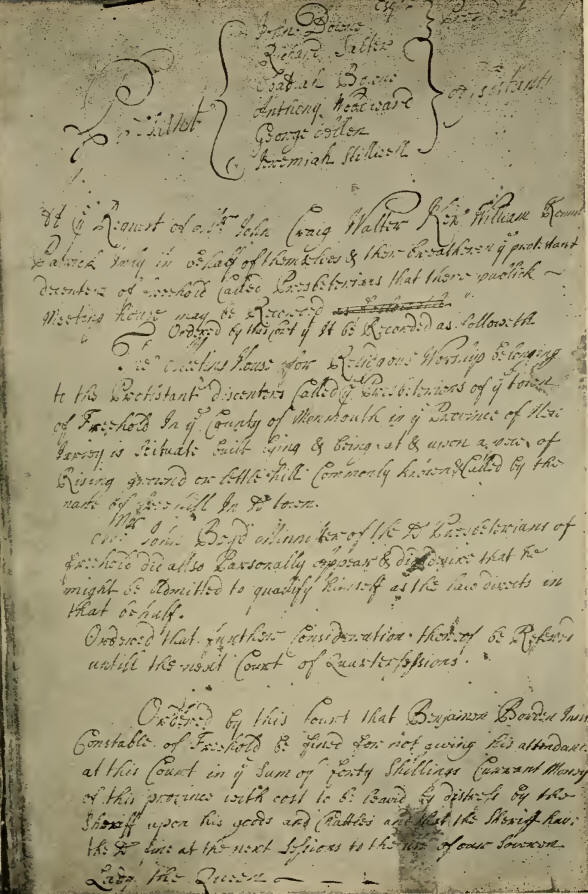 Esqr President
John Bowne
Richard Salter
Obadiah Bowne
Anthony Woodward
George Allen
Jeremiah Stillwell
Present
Assistants
At ye Request of Mr John Craig Walter Ker William
Patrick Imly in behalf of themselves & there breatheren ye protestant
decenters of freehold Called Presbiterians that there publick
Meeting house may be Recorded
Ordered by this Court yt It be Recorded as followeth
The meeting house for Religious Worship belonging
to the Protistant discenters Called ye Presbiterions of ye town
of Freehold In ye County of Monmouth in ye Province of New
Jarsey is Scituate built lying & being at & upon a peice of
Rising ground or little hill Commonly known & Called by the
name of free hill In sd town.
Mr John Boyd Minnister of the sd Presbeterians of
freehold did allso Parsonally appear & did desire that he
might be admitted to quallify himself as the law directs in
that behalf.
Ordered that further Consideration thereof be Refered
untill the next Court of Quartersessions.
Ordered by this Court that Benjamin Borden
Constable of Freehold be fined for not giving his attendance
at this Court in ye Sum of forty Shillings Currant Money
of this province with cost to be leavd by distress by the
Sheriff upon his goods and Chattles and that the Sheriff have
the sd fine at the next Sessions to the use of our Soveren
Lady the Queen